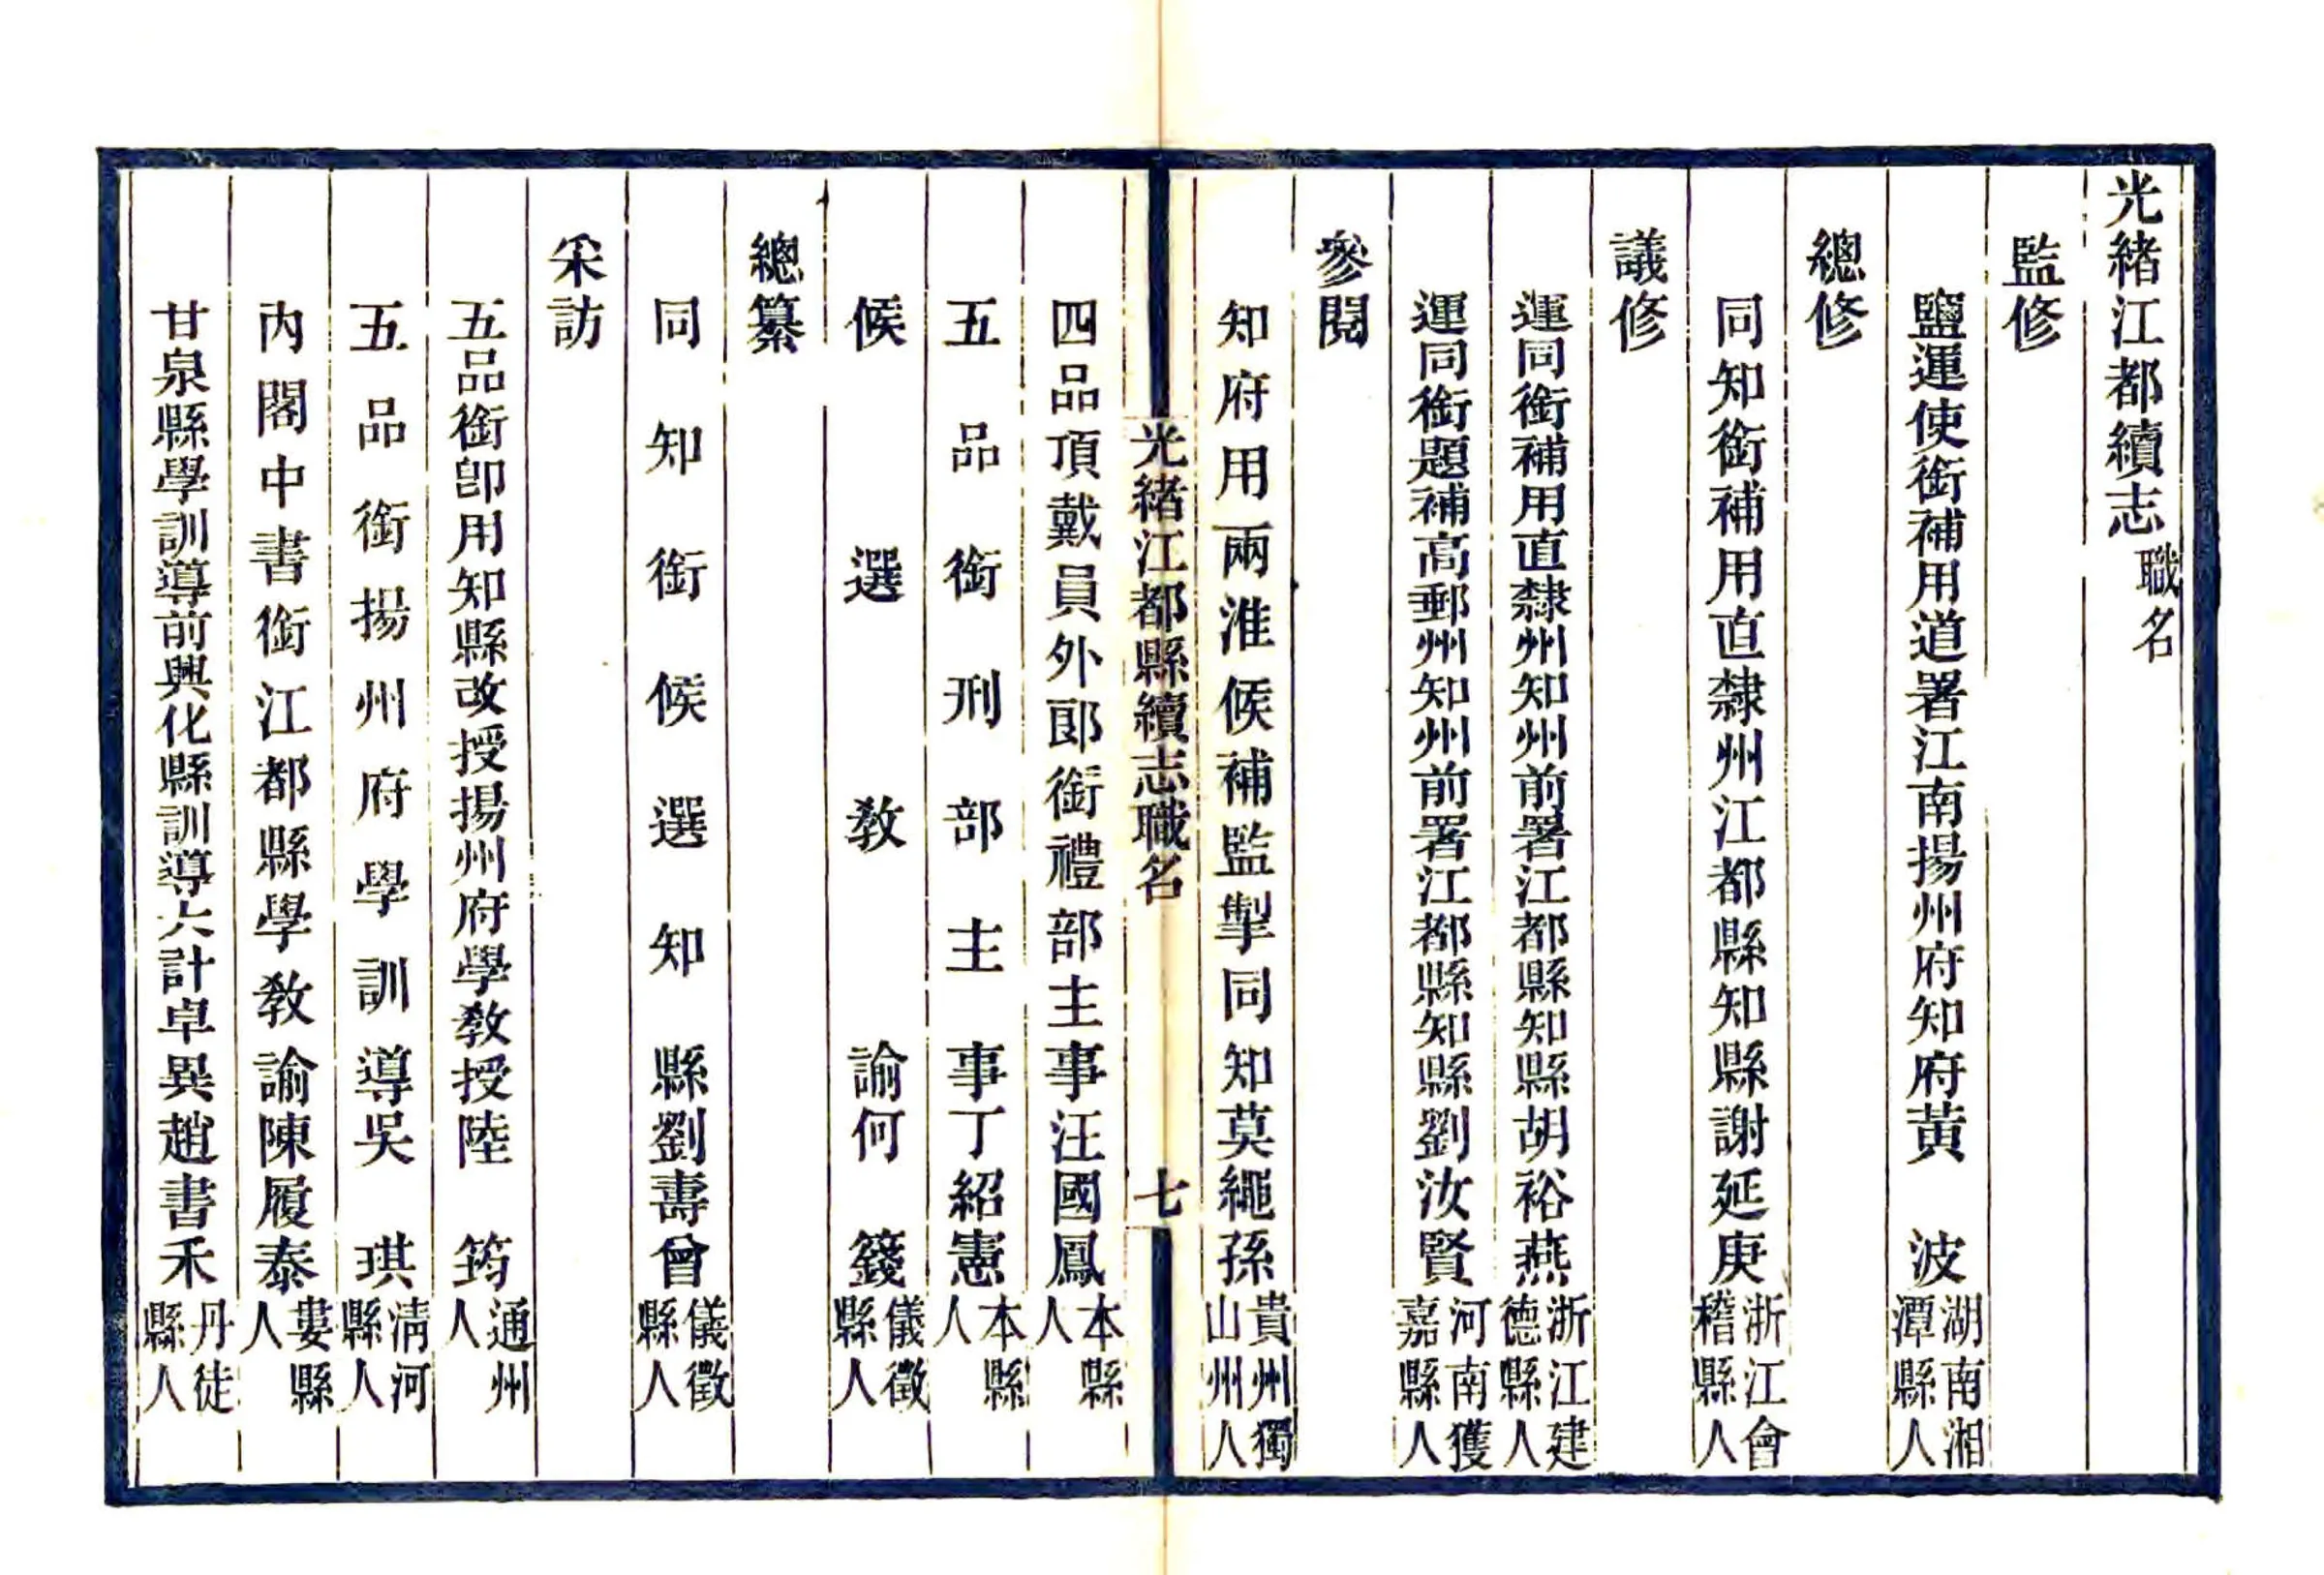 光緒江都續志職名
監修
鹽運使銜補用道署江南揚州府知府黃　波湖南湘潭縣人
總修
同知銜補用直隸州江都縣知縣謝延庚浙江會稽縣人
議修
運同銜補用直隸州知州前署江都縣知縣胡裕燕浙江建德縣人
運同銜題補高郵州知州前署江都縣知縣劉汝賢河南獲嘉縣人
參閱
知府用兩淮候補監掣同知莫繩孫貴州獨山州人
光緒江都縣續志職名　七
四品頂戴員外郎銜禮部主事汪國鳳本縣人
五品銜刑部主事丁紹憲本縣人
候選教諭何　籛儀徵縣人
總纂
同知銜候選知縣劉壽曾儀徵縣人
采訪
五品銜卽用知縣改授揚州府學教授陸　筠通州人
五品銜揚州府學訓導吳　琪清河縣人
內閣中書銜江都縣學教諭陳履泰婁縣人
甘泉縣學訓導前興化縣訓導六計卓異趙書禾丹徒縣人